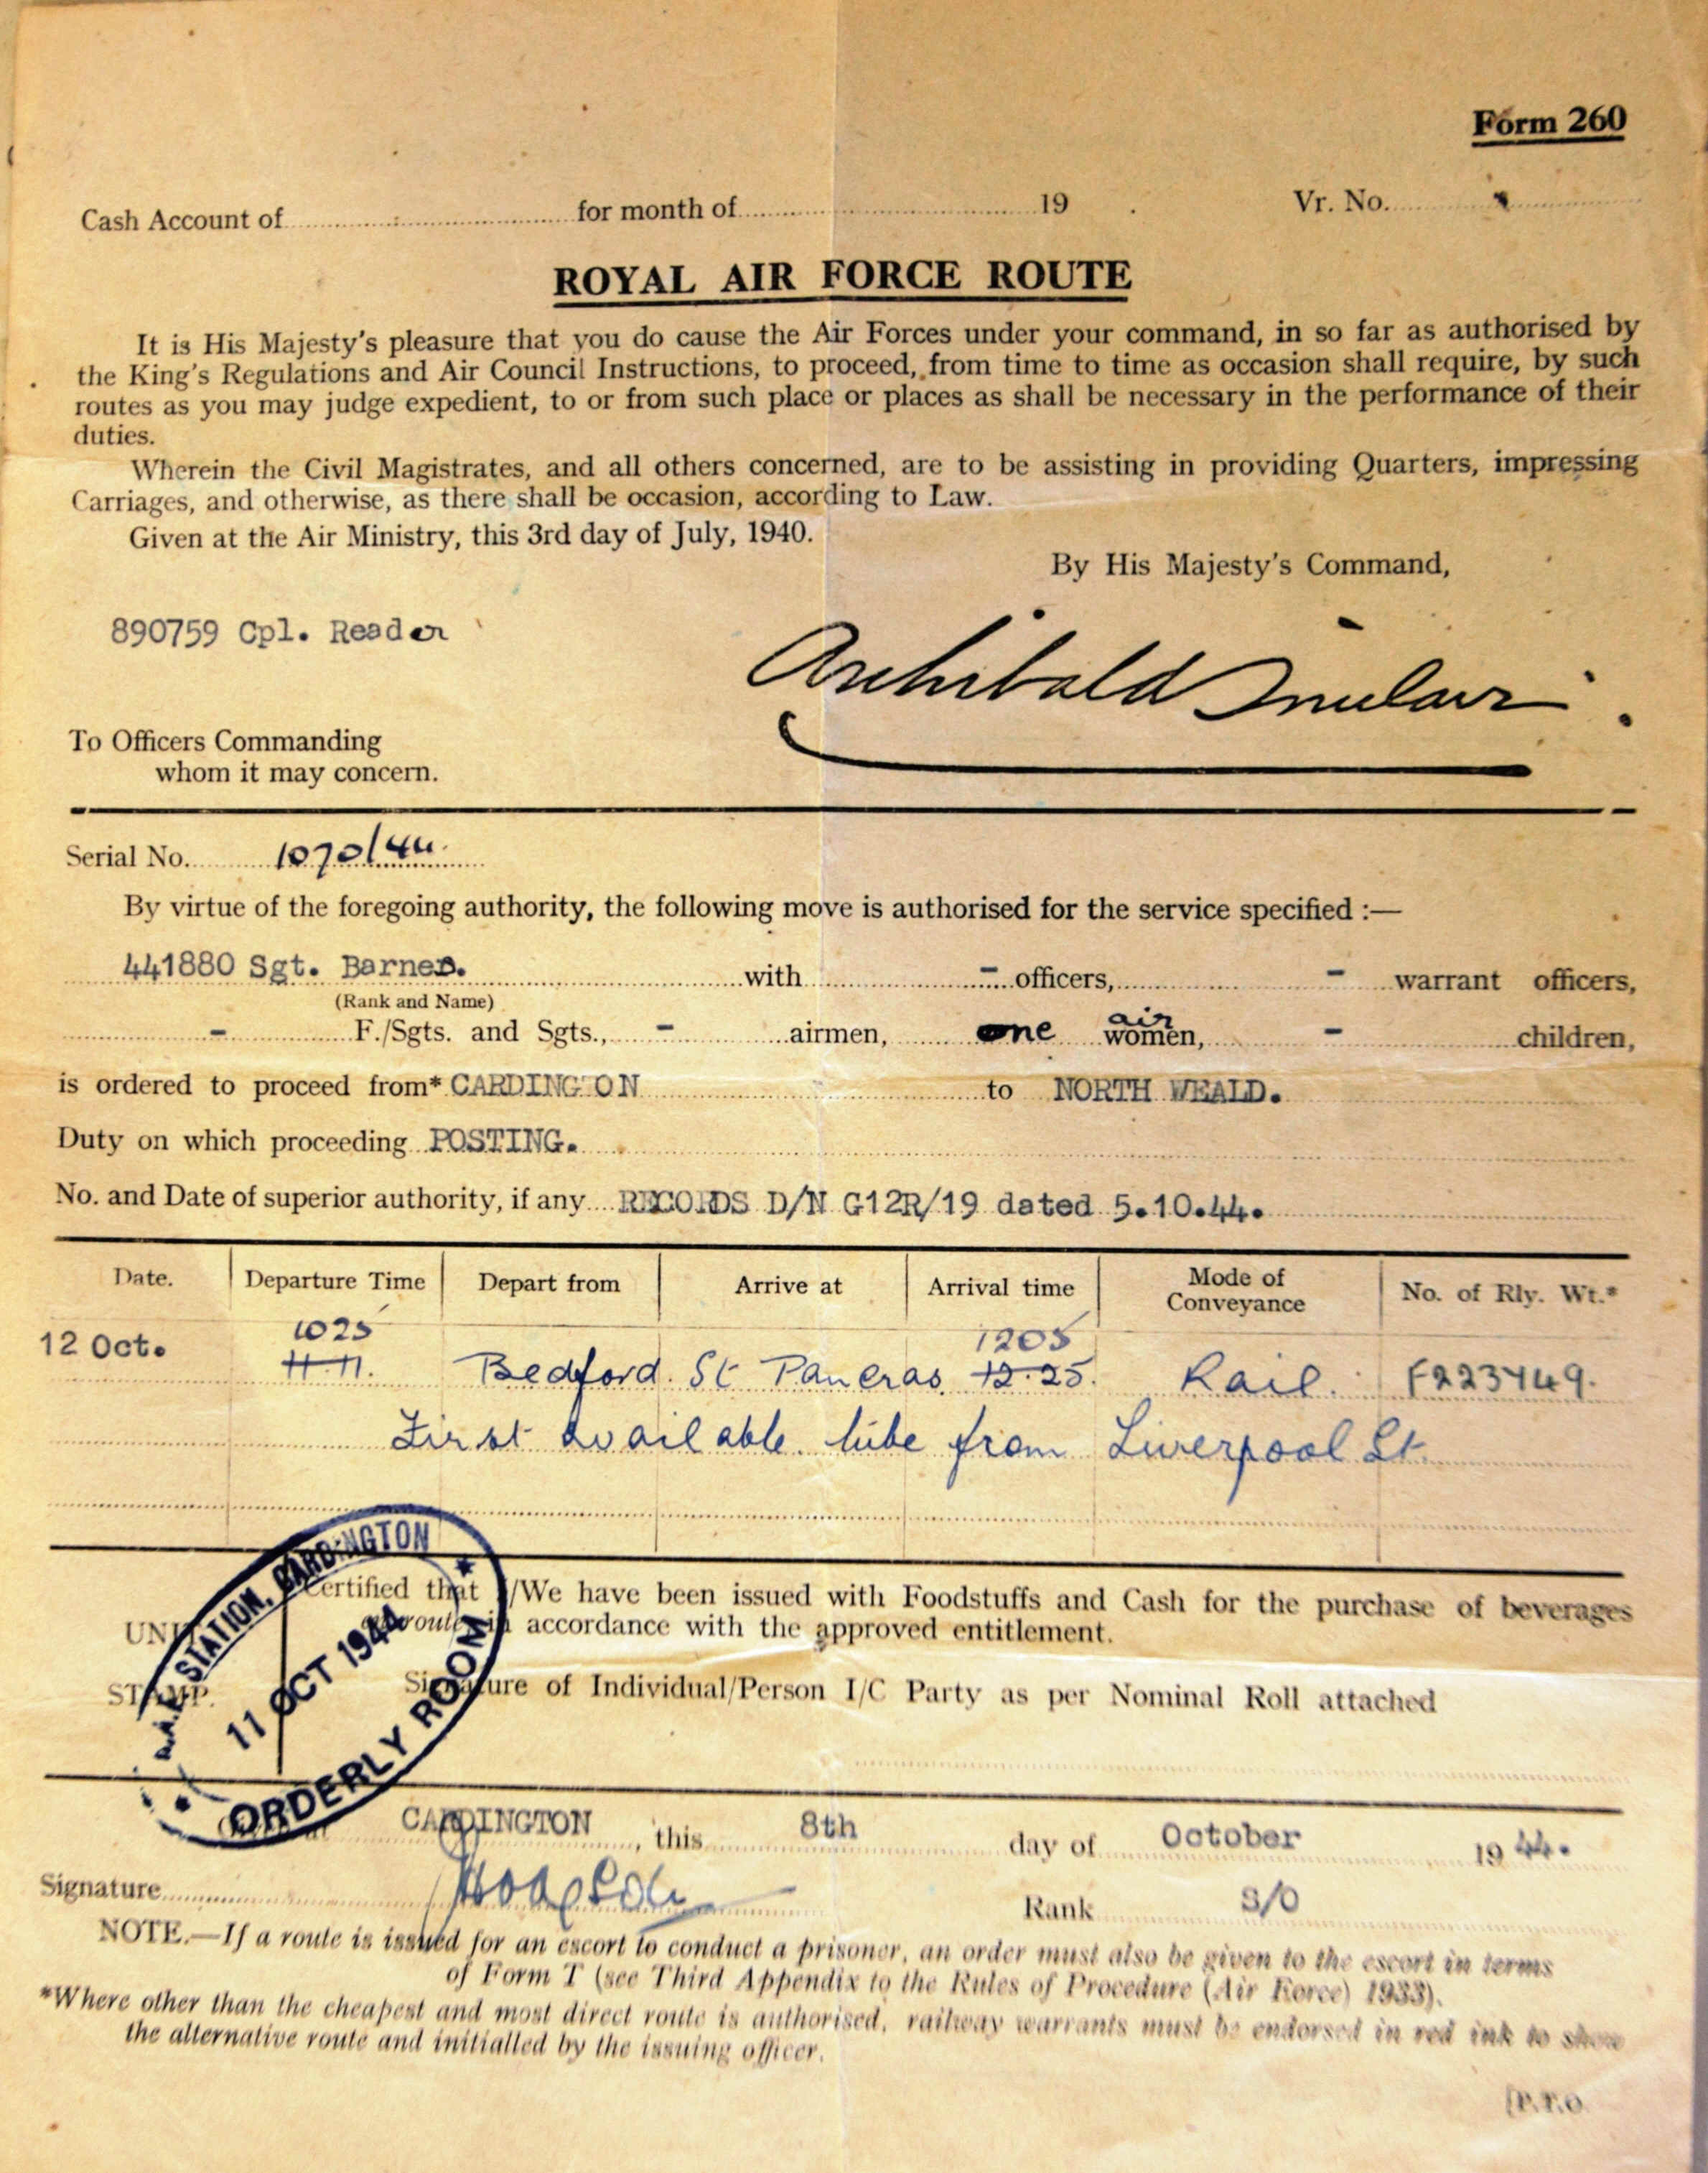 Form 260
Cash Account of for month of 19 . Vr. No.
ROYAL AIR FORCE ROUTE
It is His Majesty's pleasure that you do cause the Air Forces under your command, in so far as authorised by
the King's Regulations and Air Council Instructions, to proceed, from time to time as occasion shall require, by such
routes as you may judge expedient, to or from such place or places as shall be necessary in the performance of their
duties.
Wherein the Civil Magistrates, and all others concerned, are to be assisting in providing Quarters, impressing
Carriages, and otherwise, as there shall be occasion, according to Law.
Given at the Air Ministry, this 3rd day of July, 1940.
By His Majesty's Command,
890759 Cpl. Reader
Archibald Sinclair.
To Officers Commanding
whom it may concern.
Serial No. 1070/44.
By virtue of the foregoing authority, the following move is authorised for the service specified :—
441880 Sgt. Barnes. with - officers, - warrant officers,
(Rank and Name)
- F./Sgts. and Sgts., - airmen, one air women, - children,
is ordered to proceed from* CARDINGTON to NORTH WEALD.
Duty on which proceeding POSTING.
No. and Date of superior authority, if any RECORDS D/N G12R/19 dated 5.10.44.
Date. Departure Time Depart from Arrive at Arrival time Mode of Conveyance No. of Rly. Wt.*
1025 1205
12 Oct. 11.11. Bedford. St Pancras 12.25. Rail. F223449.
First available tube from Liverpool St.
UNIT STAMP.
R.A.F. STATION, CARDINGTON
11 OCT 1944
ORDERLY ROOM
Certified that I/We have been issued with Foodstuffs and Cash for the purchase of beverages
en route in accordance with the approved entitlement.
Signature of Individual/Person I/C Party as per Nominal Roll attached
CARDINGTON, this 8th day of October 1944.
Signature Rank S/O
NOTE.—If a route is issued for an escort to conduct a prisoner, an order must also be given to the escort in terms
of Form T (see Third Appendix to the Rules of Procedure (Air Force) 1933).
*Where other than the cheapest and most direct route is authorised, railway warrants must be endorsed in red ink to show
the alternative route and initialled by the issuing officer.
[P.T.O